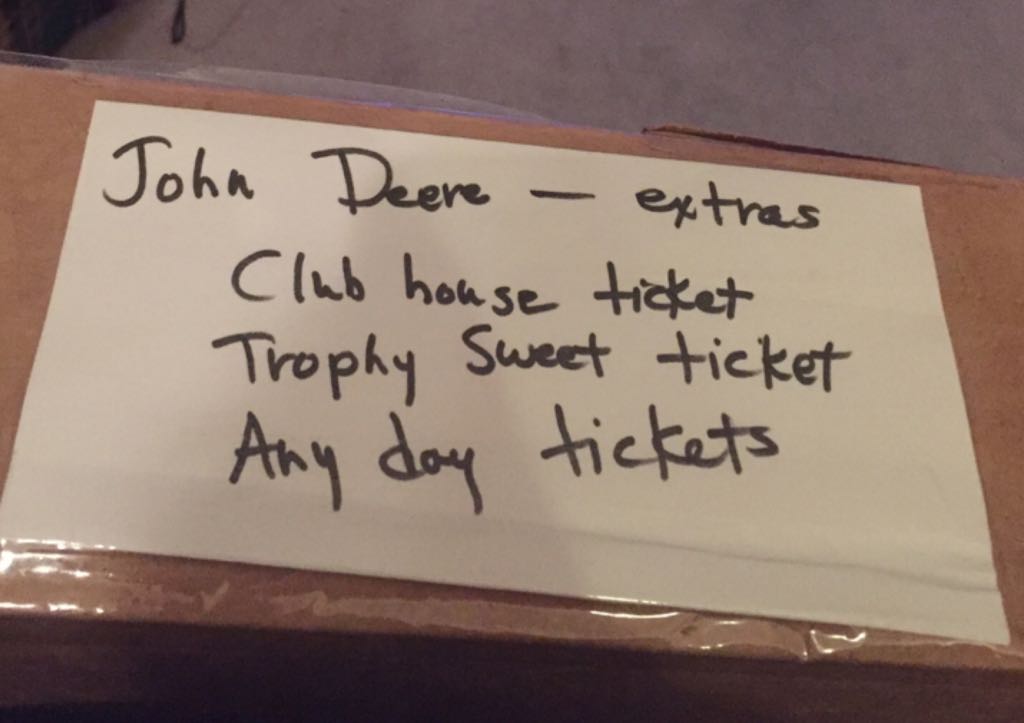 John Deere — extras
Club house ticket
Trophy Sweet ticket
Any day tickets